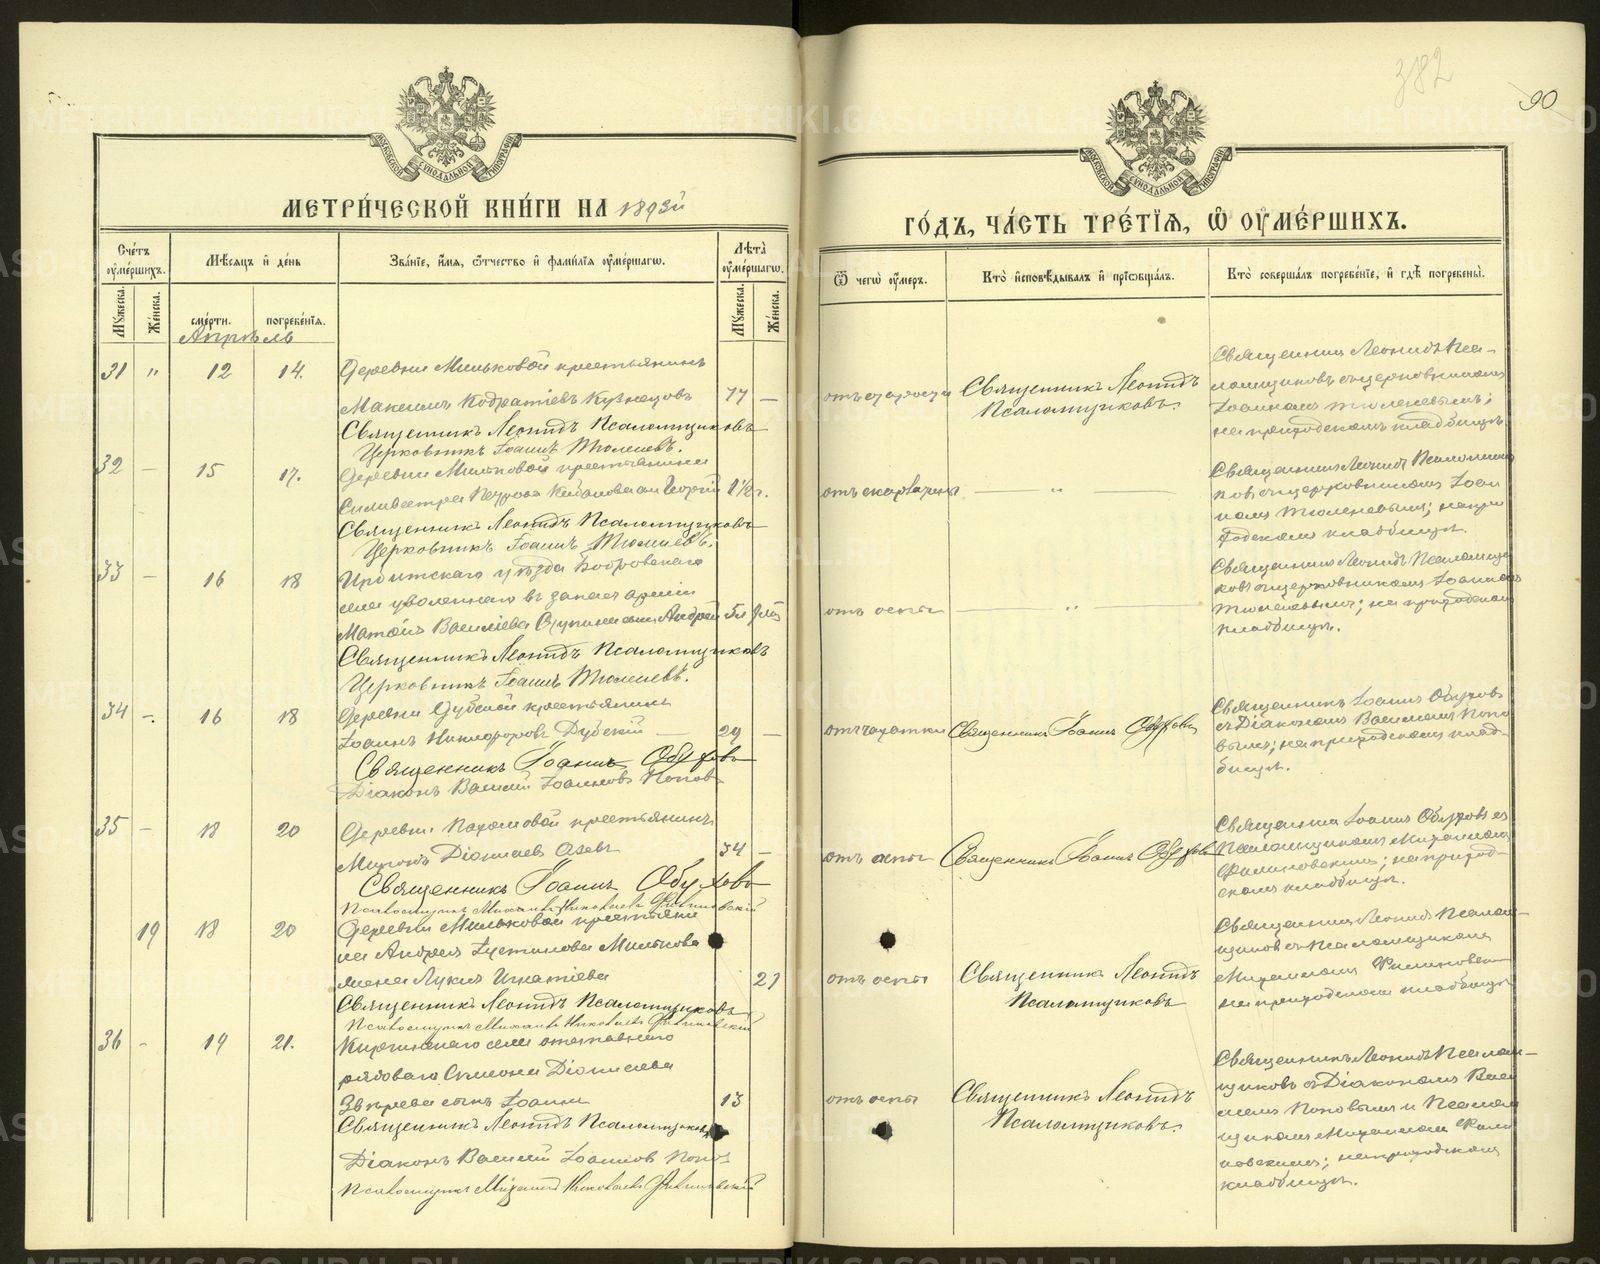 382
90
МОСКОВСКОЙ СѴНОДАЛЬНОЙ ТИПОГРАФІИ
МЕТРИ́ЧЕСКОЙ КНИ́ГИ НА 1893й
Сче́тъ ᲂу҆ме́ршихъ.
Мѣ́сѧцъ и҆ де́нь
Зва́нїе, и҆́мѧ, ѻ҆́тчество и҆ фами́лїѧ ᲂу҆ме́ршагѡ.
Лѣта̀ ᲂу҆ме́ршагѡ.
Мꙋ́жеска.
Же́нска.
сме́рти.
погребе́нїѧ.
Мꙋ́жеска.
Же́нска.
Апрѣль
31 " 12 14. Деревни Мильковой крестьянинъ
Максимъ Кодратіевъ Кузнецовъ 77 —
Священникъ Леонидъ Псаломщиковъ
Церковникъ Іоаннъ Тюленевъ.
32 — 15 17. Деревни Мильковой крестьянина
Силивестра Петрова сын Георгій 1½ г.
Священникъ Леонидъ Псаломщиковъ
Церковникъ Іоаннъ Тюленевъ.
33 — 16 18 Ирбитскаго уѣзда Бобровскаго
села уволеннаго въ запасъ арміи
Матѳія Василіева сынъ Андрей
Священникъ Леонидъ Псаломщиковъ
Церковникъ Іоаннъ Тюленевъ.
34 — 16 18 Деревни Дубской крестьянинъ
Іоаннъ Никифоровъ Дубскій — 29 —
Священникъ Іоаннъ Обуховъ
Діаконъ Василій Іоанновъ Поповъ
35 — 18 20 Деревни крестьянинъ
Миронъ Діонисіевъ 34 —
Священникъ Іоаннъ Обуховъ
Псаломщикъ Михаилъ Николаевъ Филиновскій
19 18 20 Деревни Мильковой крестьяни
на Андрея Іустинова Милькова
жена Лукія Игнатіева 27
Священникъ Леонидъ Псаломщиковъ
Псаломщикъ Михаилъ Николаевъ Филиновскій
36 - 19 21. Киргинскаго села отставнаго
рядоваго Симеона Діонисіева
Звѣрева сынъ Іоаннъ 13
Священникъ Леонидъ Псаломщиковъ
Діаконъ Василій Іоанновъ Поповъ
Псаломщикъ Михаилъ Николаевъ Филиновскій
МОСКОВСКОЙ СѴНОДАЛЬНОЙ ТИПОГРАФІИ
ГО́ДЪ, ЧА́СТЬ ТРЕ́ТЇѦ, Ѡ҆ ᲂУ҆МЕ́РШИХЪ.
Ѿ чегѡ̀ ᲂу҆́меръ.
Кто̀ и҆сповѣ́дывалъ и҆ прїѡбща́лъ.
Кто̀ соверша́лъ погребе́нїе, и҆ гдѣ̀ погребены̀.
отъ старости
Священникъ Леонидъ
Псаломщиковъ.
Священникъ Леонидъ Пса-
ломщиковъ съ церковникомъ
Іоанномъ Тюленевымъ;
на приходскомъ кладбищѣ.
отъ скарлатины — " —
Священникъ Леонидъ Псаломщи
ковъ съ церковникомъ Іоан
номъ Тюленевымъ; на при
ходскомъ кладбищѣ.
отъ оспы — " —
Священникъ Леонидъ Псаломщи
ковъ съ церковникомъ Іоанномъ
Тюленевымъ; на приходскомъ
кладбищѣ.
отъ чахотки Священникъ Іоаннъ Обуховъ
Священникъ Іоаннъ Обуховъ
съ Діакономъ Василіемъ Попо
вымъ; на приходскомъ клад-
бищѣ.
отъ оспы Священникъ Іоаннъ Обуховъ
Священникъ Іоаннъ Обуховъ съ
Псаломщикомъ Михаиломъ
Филиновскимъ; на приход-
скомъ кладбищѣ.
отъ оспы
Священникъ Леонидъ
Псаломщиковъ
Священникъ Леонидъ Псалом-
щиковъ съ Псаломщикомъ
Михаиломъ Филиновским
на приходскомъ кладбищѣ
отъ оспы
Священникъ Леонидъ
Псаломщиковъ.
Священникъ Леонидъ Псалом-
щиковъ съ Діакономъ Васи
ліемъ Поповымъ и Псалом
щикомъ Михаиломъ Фили
новскимъ; на приходскомъ
кладбищѣ.
METRIKI.GASO-URAL.RU